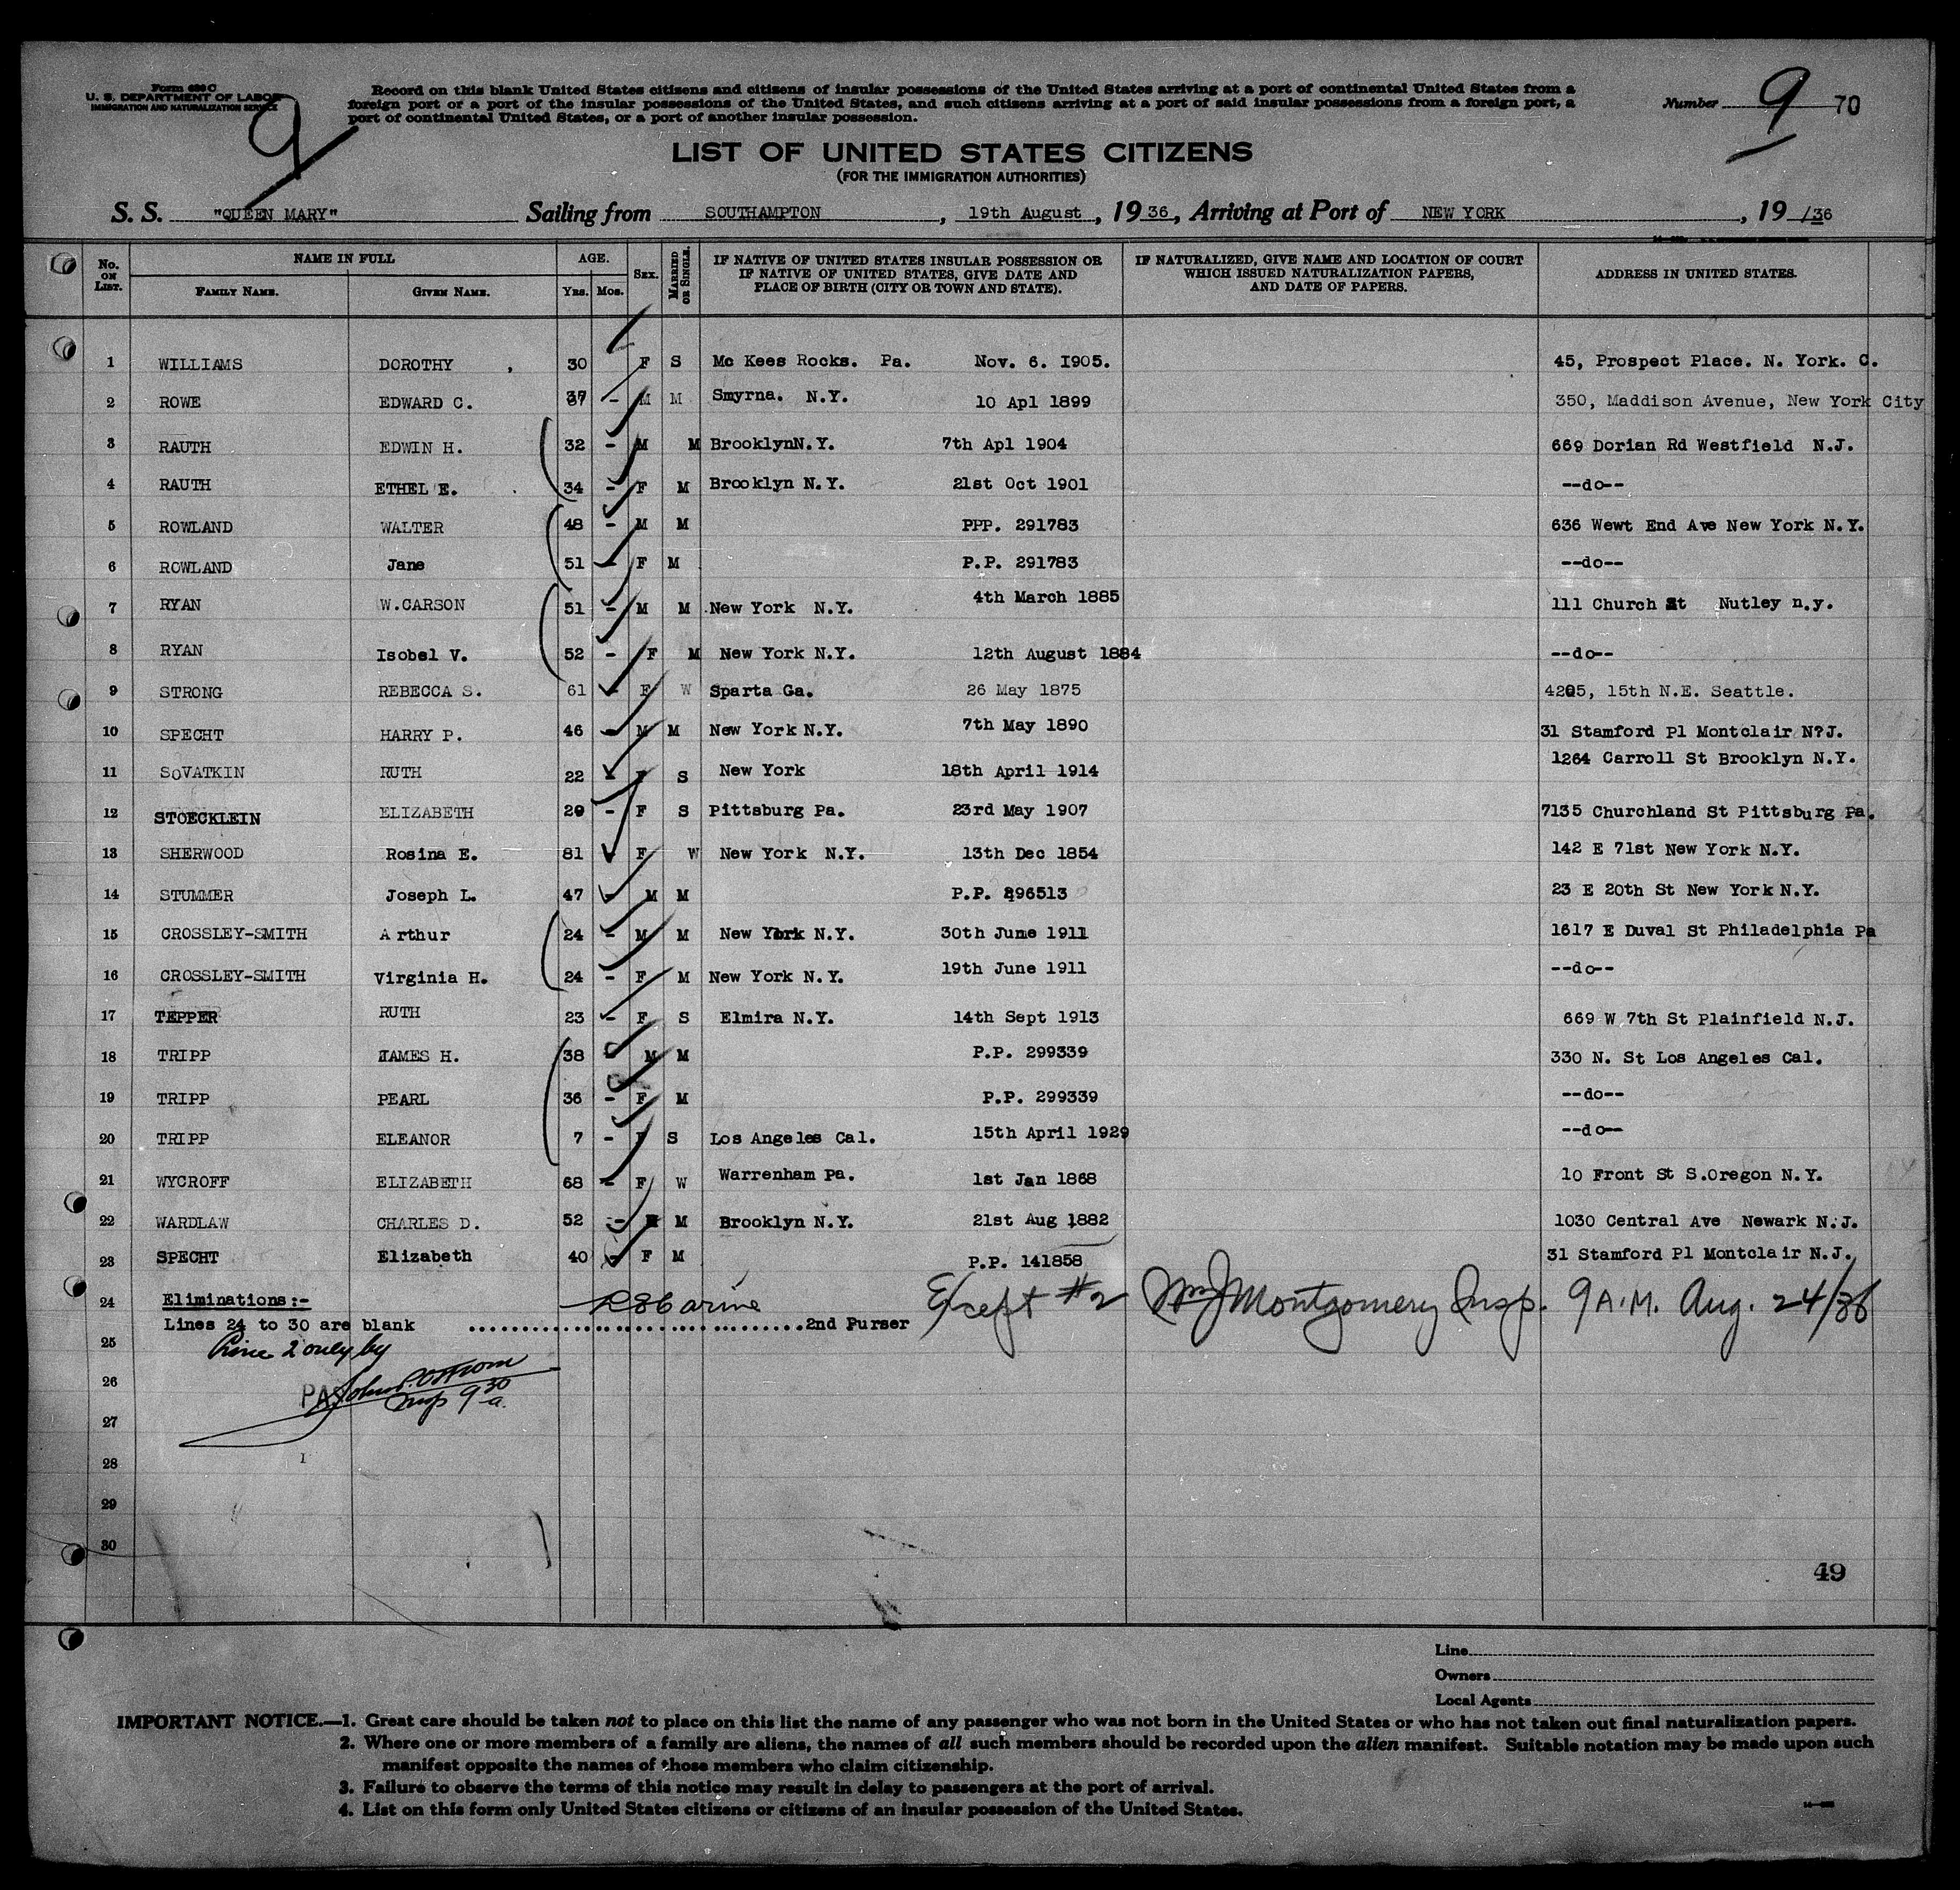 Form 630 C
U. S. DEPARTMENT OF LABOR
IMMIGRATION AND NATURALIZATION SERVICE
9
Record on this blank United States citizens and citizens of insular possessions of the United States arriving at a port of continental United States from a
foreign port or a port of the insular possessions of the United States, and such citizens arriving at a port of said insular possessions from a foreign port, a
port of continental United States, or a port of another insular possession.
Number 9 70
LIST OF UNITED STATES CITIZENS
(FOR THE IMMIGRATION AUTHORITIES)
S. S. "QUEEN MARY" Sailing from SOUTHAMPTON, 19th August, 1936, Arriving at Port of NEW YORK, 19 /36
No. ON LIST. NAME IN FULL FAMILY NAME. GIVEN NAME. AGE. YRS. MOS. SEX. MARRIED OR SINGLE. IF NATIVE OF UNITED STATES INSULAR POSSESSION OR IF NATIVE OF UNITED STATES, GIVE DATE AND PLACE OF BIRTH (CITY OR TOWN AND STATE). IF NATURALIZED, GIVE NAME AND LOCATION OF COURT WHICH ISSUED NATURALIZATION PAPERS, AND DATE OF PAPERS. ADDRESS IN UNITED STATES.
1 WILLIAMS DOROTHY , 30 F S Mc Kees Rocks. Pa. Nov. 6. I905. 45, Prospect Place. N. York. C.
2 ROWE EDWARD C. 37 - M M Smyrna. N.Y. 10 Apl 1899 350, Maddison Avenue, New York City
3 RAUTH EDWIN H. 32 - M M BrooklynN.Y. 7th Apl 1904 669 Dorian Rd Westfield N.J.
4 RAUTH ETHEL E. . 34 - F M Brooklyn N.Y. 21st Oct 1901 --do--
5 ROWLAND WALTER 48 - M M PPP. 291783 636 Wewt End Ave New York N.Y.
6 ROWLAND Jane 51 - F M P.P. 291783 --do--
7 RYAN W.CARSON 51 - M M New York N.Y. 4th March 1885 111 Church St Nutley n.y.
8 RYAN Isobel V. 52 - F M New York N.Y. 12th August 1884 --do--
9 STRONG REBECCA S. 61 - F W Sparta Ga. 26 May 1875 4205, 15th N.E. Seattle.
10 SPECHT HARRY P. 46 - M M New York N.Y. 7th May 1890 31 Stamford Pl Montclair N?J.
11 SoVATKIN RUTH 22 - F S New York 18th April 1914 1264 Carroll St Brooklyn N.Y.
12 STOECKLEIN ELIZABETH 29 - F S Pittsburg Pa. 23rd May 1907 7135 Churchland St Pittsburg Pa.
13 SHERWOOD Rosina E. 81 - F W New York N.Y. 13th Dec 1854 142 E 71st New York N.Y.
14 STUMMER Joseph L. 47 - M M P.P. 296513 23 E 20th St New York N.Y.
15 CROSSLEY-SMITH Arthur 24 - M M New York N.Y. 30th June 1911 1617 E Duval St Philadelphia Pa
16 CROSSLEY-SMITH Virginia H. 24 - F M New York N.Y. 19th June 1911 --do--
17 TEPPER RUTH 23 - F S Elmira N.Y. 14th Sept 1913 669 W 7th St Plainfield N.J.
18 TRIPP JAMES H. 38 - M M P.P. 299339 330 N. St Los Angeles Cal.
19 TRIPP PEARL 36 - F M P.P. 299339 --do--
20 TRIPP ELEANOR 7 - F S Los Angeles Cal. 15th April 1929 --do--
21 WYCROFF ELIZABETH 68 - F W Warrenham Pa. 1st Jan 1868 10 Front St S.Oregon N.Y.
22 WARDLAW CHARLES D. 52 - M M Brooklyn N.Y. 21st Aug 1882 1030 Central Ave Newark N.J.
23 SPECHT Elizabeth 40 - F M P.P. 141858 31 Stamford Pl Montclair N.J.
24 Eliminations:- Except #2 Wm J Montgomery Insp. 9 A.M. Aug. 24/36
Lines 24 to 30 are blank ........................2nd Purser
25 Line 2 only by
26 John P. Ostrom
Insp 9 30 a.
27
28
29
30
49
Line
Owners
Local Agents
IMPORTANT NOTICE.—1. Great care should be taken not to place on this list the name of any passenger who was not born in the United States or who has not taken out final naturalization papers.
2. Where one or more members of a family are aliens, the names of all such members should be recorded upon the alien manifest. Suitable notation may be made upon such
manifest opposite the names of those members who claim citizenship.
3. Failure to observe the terms of this notice may result in delay to passengers at the port of arrival.
4. List on this form only United States citizens or citizens of an insular possession of the United States.